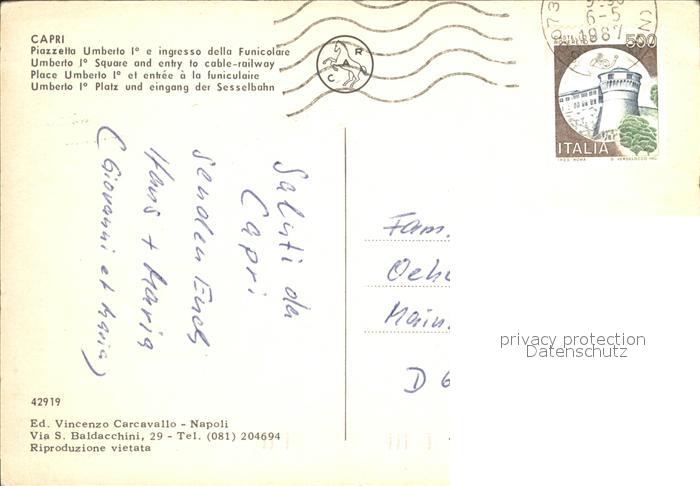 CAPRI
Piazzetta Umberto I° e ingresso della Funicolare
Umberto I° Square and entry to cable-railway
Place Umberto I° et entrée à la funiculaire
Umberto I° Platz und eingang der Sesselbahn
CAR
6-5
1987
500
ITALIA
Saluti da
Capri
senden Euch
Hans + Maria
(Giovanni et Maria)
Fam.
Main.
D 6
privacy protection
Datenschutz
42919
Ed. Vincenzo Carcavallo - Napoli
Via S. Baldacchini, 29 - Tel. (081) 204694
Riproduzione vietata